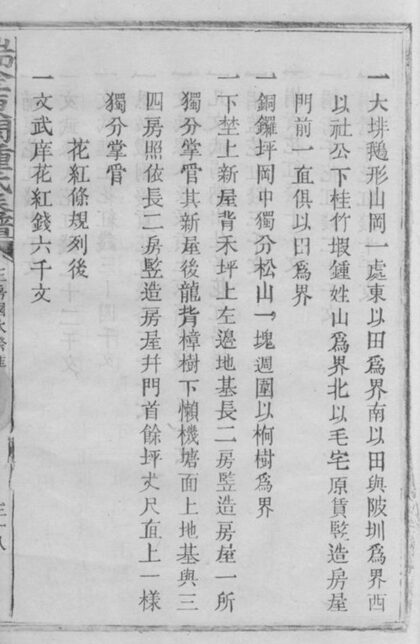 一大排𪃈形山岡一處東以田爲界南以田與陂圳爲界西
以社公下桂竹塅鍾姓山爲界北以毛宅原賃竪造房屋
門前一直俱以田爲界
一銅鑼坪岡中獨分松山一塊週圍以桐樹爲界
一下坴上新屋背禾坪上左邊地基長二房竪造房屋一所
獨分掌管其新屋後龍背樟樹下懶機塘面上地基與三
四房照依長二房竪造房屋幷門首餘坪丈尺直上一樣
獨分掌管
花紅條規列後
一文武庠花紅錢六千文